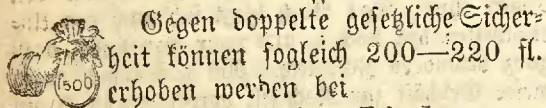 Gegen doppelte geſetzliche Sicher⸗
heit können ſogleich 200—220 fl.
erhoben werden bei